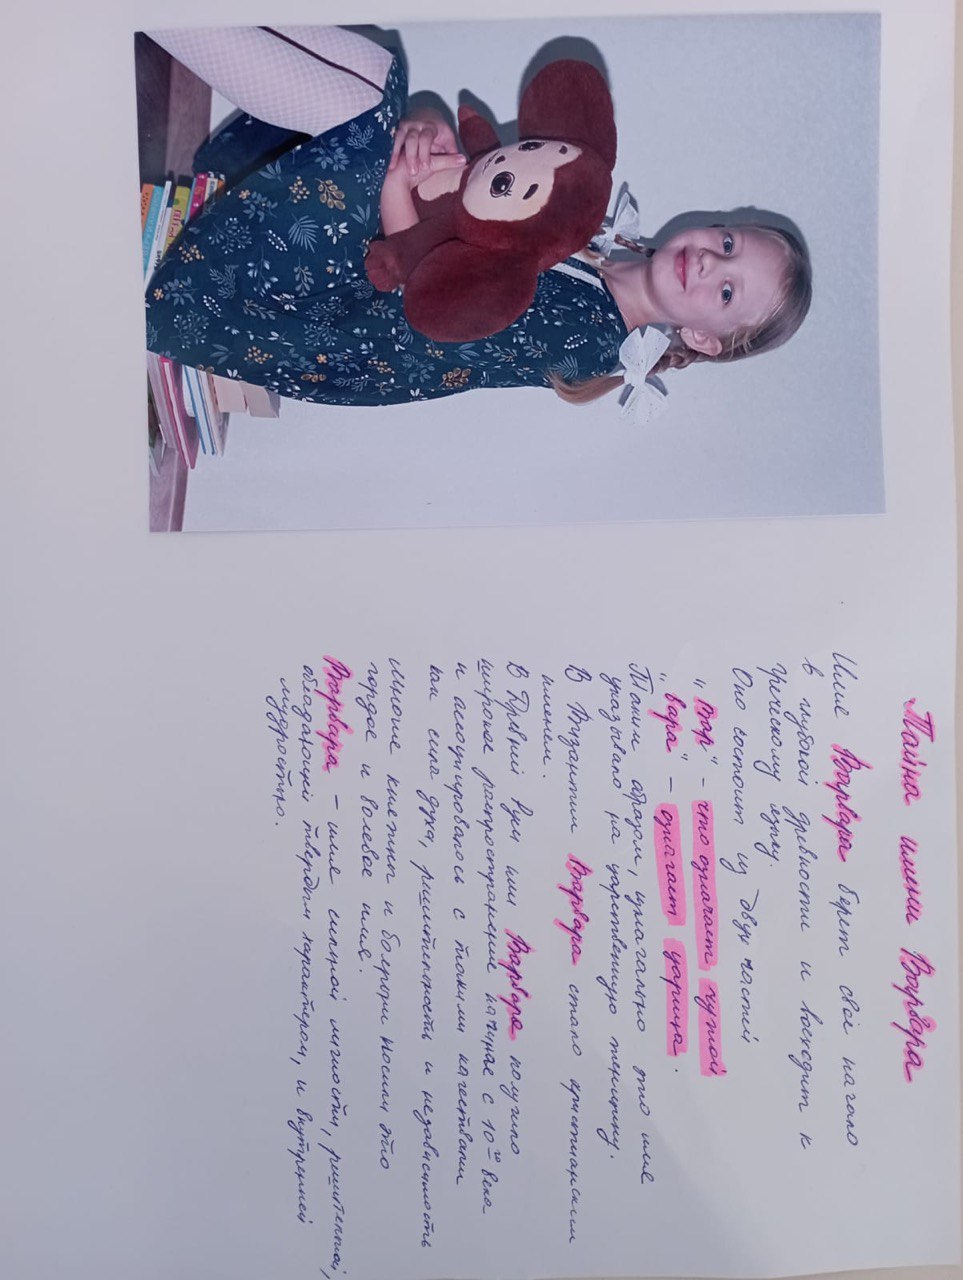 Тайна имени Варвара
Имя Варвара берет своё начало
в глубокой древности и восходит к
греческому языку.
Оно состоит из двух частей
"Вар" - что означает чужой
"вара" - означает царица.
Таким образом, изначально это имя
указывало на царственную женщину.
В Византии Варвара стало христианским
именем.
В Древней Руси имя Варвара получило
широкое распространение начиная с 10го века
и ассоциировалось с такими качествами
как сила духа, решительность и независимость
многие княжны и боярыни носили это
гордое и волевое имя.
Варвара - имя сильной личности, решительной,
обладающей твердым характером, и внутренней
мудростью.